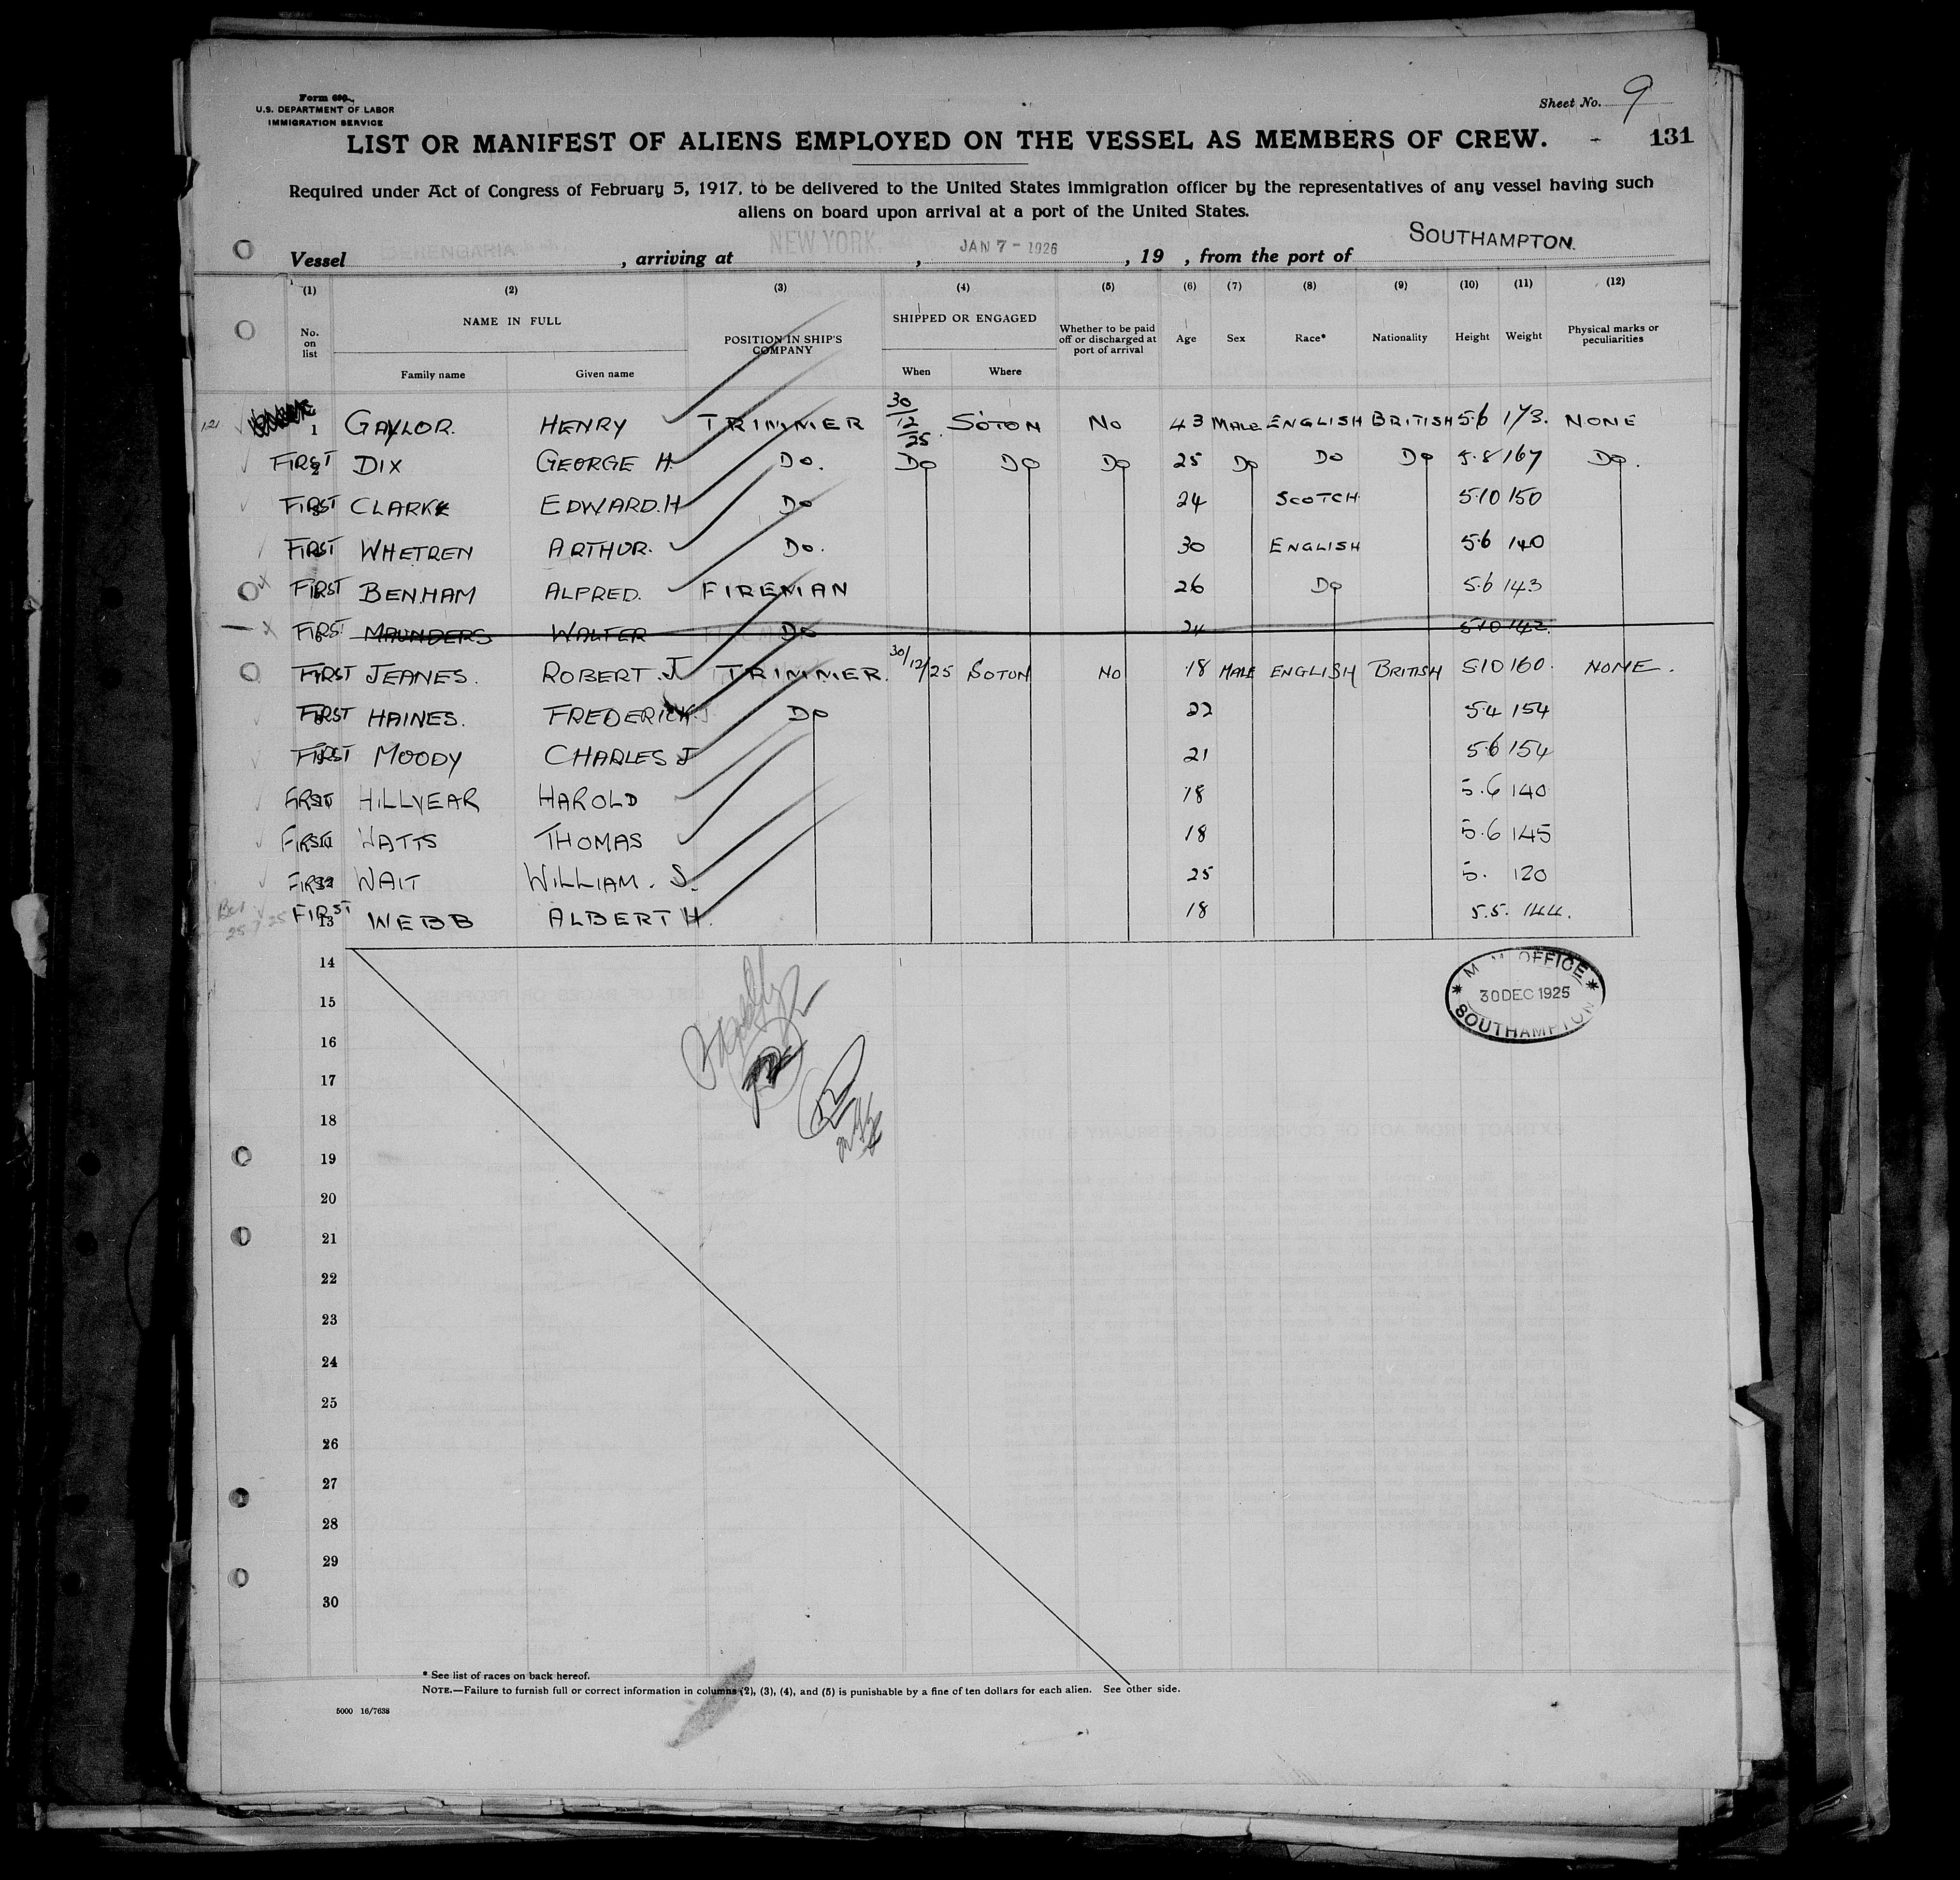 Form 680
U.S. DEPARTMENT OF LABOR
IMMIGRATION SERVICE
Sheet No. 9
LIST OR MANIFEST OF ALIENS EMPLOYED ON THE VESSEL AS MEMBERS OF CREW. - 131
Required under Act of Congress of February 5, 1917, to be delivered to the United States immigration officer by the representatives of any vessel having such
aliens on board upon arrival at a port of the United States.
Vessel BERENGARIA, arriving at NEW YORK, JAN 7 - 1926, 19 , from the port of SOUTHAMPTON.
(1) (2) (3) (4) (5) (6) (7) (8) (9) (10) (11) (12)
No. on list NAME IN FULL POSITION IN SHIP'S COMPANY SHIPPED OR ENGAGED Whether to be paid off or discharged at port of arrival Age Sex Race* Nationality Height Weight Physical marks or peculiarities
Family name Given name When Where
121 1 GAYLOR. HENRY TRIMMER 30/12/25. SOTON NO 43 MALE ENGLISH BRITISH 5.6 173. NONE
FIRST 2 DIX GEORGE H. DO. DO DO DO 25 DO DO DO 5.8 167 DO.
FIRST CLARKE EDWARD.H DO 24 SCOTCH 5.10 150
FIRST WHETREN ARTHUR. DO. 30 ENGLISH 5.6 140
FIRST BENHAM ALFRED. FIREMAN 26 DO 5.6 143
FIRST 6 MAUNDERS WALTER DO 24 5.10 142.
FIRST JEANES. ROBERT.J TRIMMER. 30/12/25 SOTON NO 18 MALE ENGLISH BRITISH 510 160. NONE.
FIRST HAINES. FREDERICK J. DO 22 5.4 154
FIRST MOODY CHARLES J 21 5.6 154
FIRST 10 HILLYEAR HAROLD 18 5.6 140
FIRST 11 WATTS THOMAS 18 5.6 145
FIRST 12 WAIT WILLIAM. S. 25 5. 120
FIRST 13 WEBB ALBERT H. 18 5.5. 144.
14
M. M. OFFICE
15
30 DEC 1925
SOUTHAMPTON
16
17
18
19
20
21
22
23
24
25
26
27
28
29
30
* See list of races on back hereof.
NOTE.—Failure to furnish full or correct information in columns (2), (3), (4), and (5) is punishable by a fine of ten dollars for each alien. See other side.
5000 16/7638